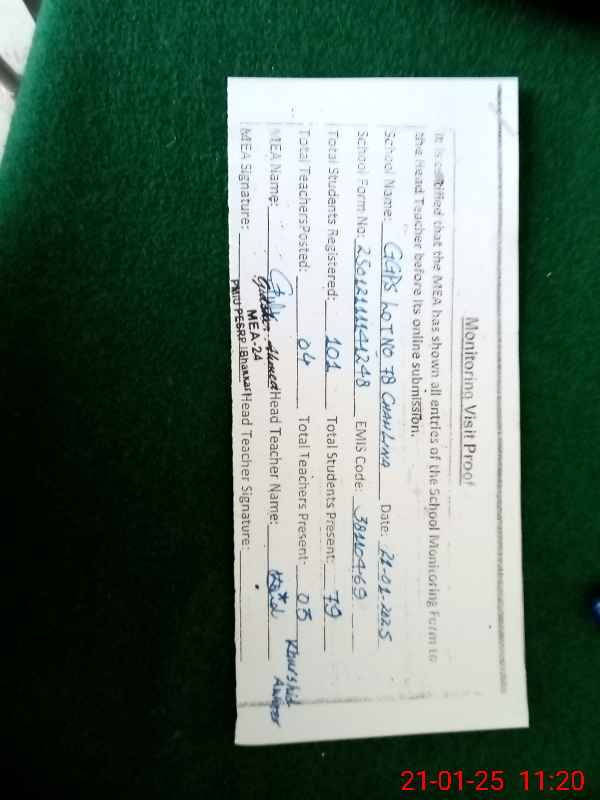 Monitoring Visit Proof
It is certified that the MEA has shown all entries of the School Monitoring Form to
the Head Teacher before its online submission.
School Name: GGPS LOT NO 78 CHAH LINA Date: 21-01-2025
School Form No: EMIS Code: 38110469
Total Students Registered: 101 Total Students Present: 79
Total Teachers Posted: 04 Total Teachers Present: 03
MEA Name: Ahmed Head Teacher Name: Khurshid
MEA Signature: Head Teacher Signature:
MEA-24
PMIU PESRP (Bhakkar)
21-01-25 11:20